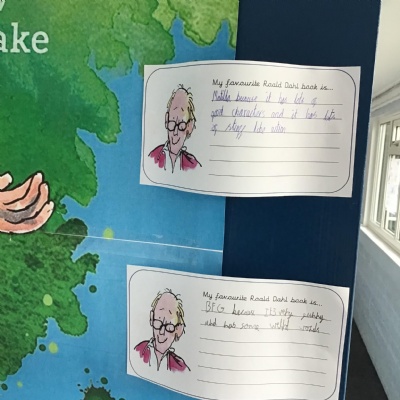 ake
My favourite Roald Dahl book is...
Matilda because it has lots of
good characters and it has lots
of
My favourite Roald Dahl book is...
BFG because its very
and has some weird words